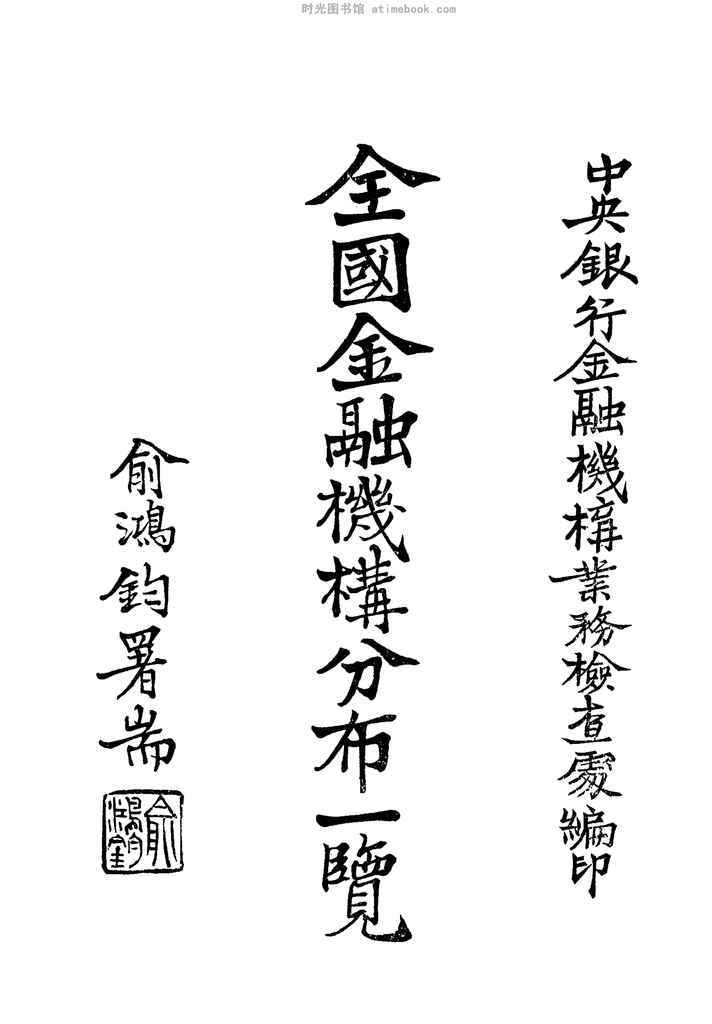 时光图书馆 atimebook.com
中央銀行金融機構業務檢查處編印
全國金融機構分布一覽
俞鴻鈞署耑
俞鴻鈞